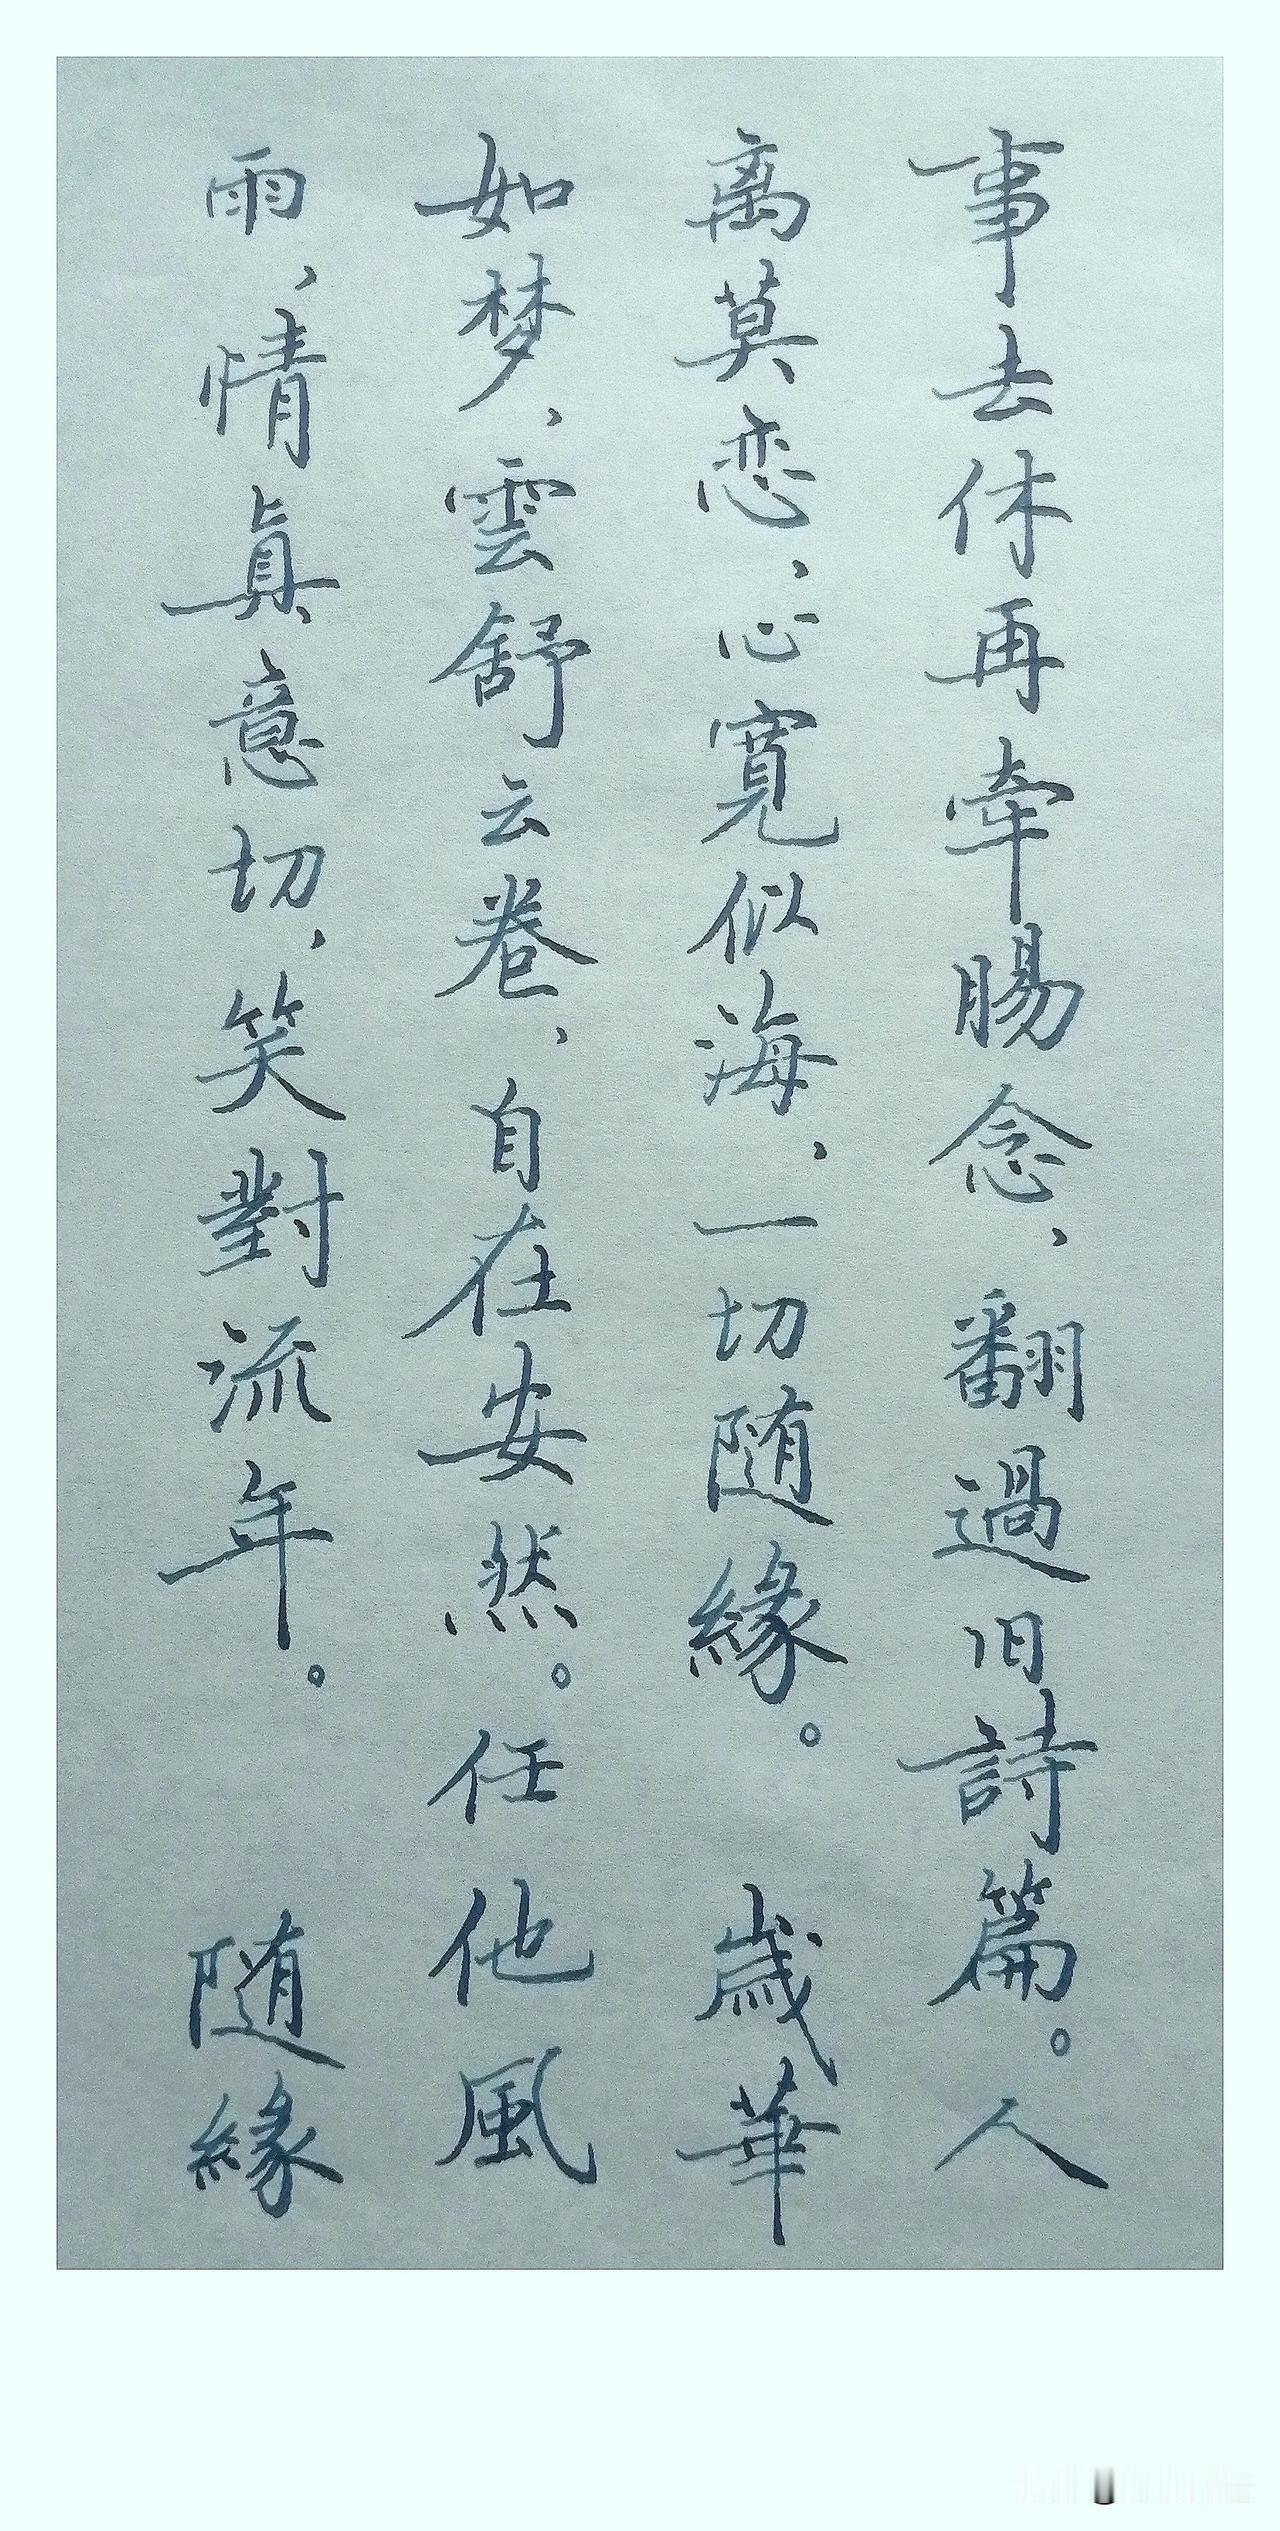 事去休再牵腸念、翻過旧詩篇。人
离莫恋、心寬似海、一切随緣。 歲華
如梦、雲舒云卷、自在安然。任他風
雨、情真意切、笑對流年。 随緣